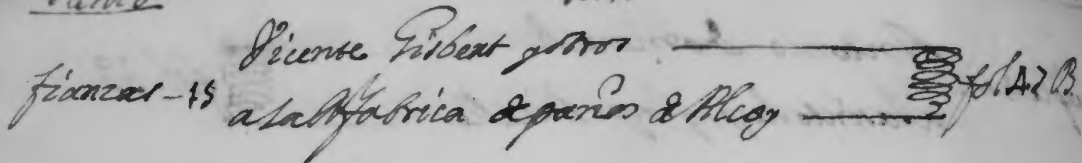 Vicente Gisbert y otros
fianzas - 15
a la Rl fabrica de paños de Alcoy
fol 47 B.